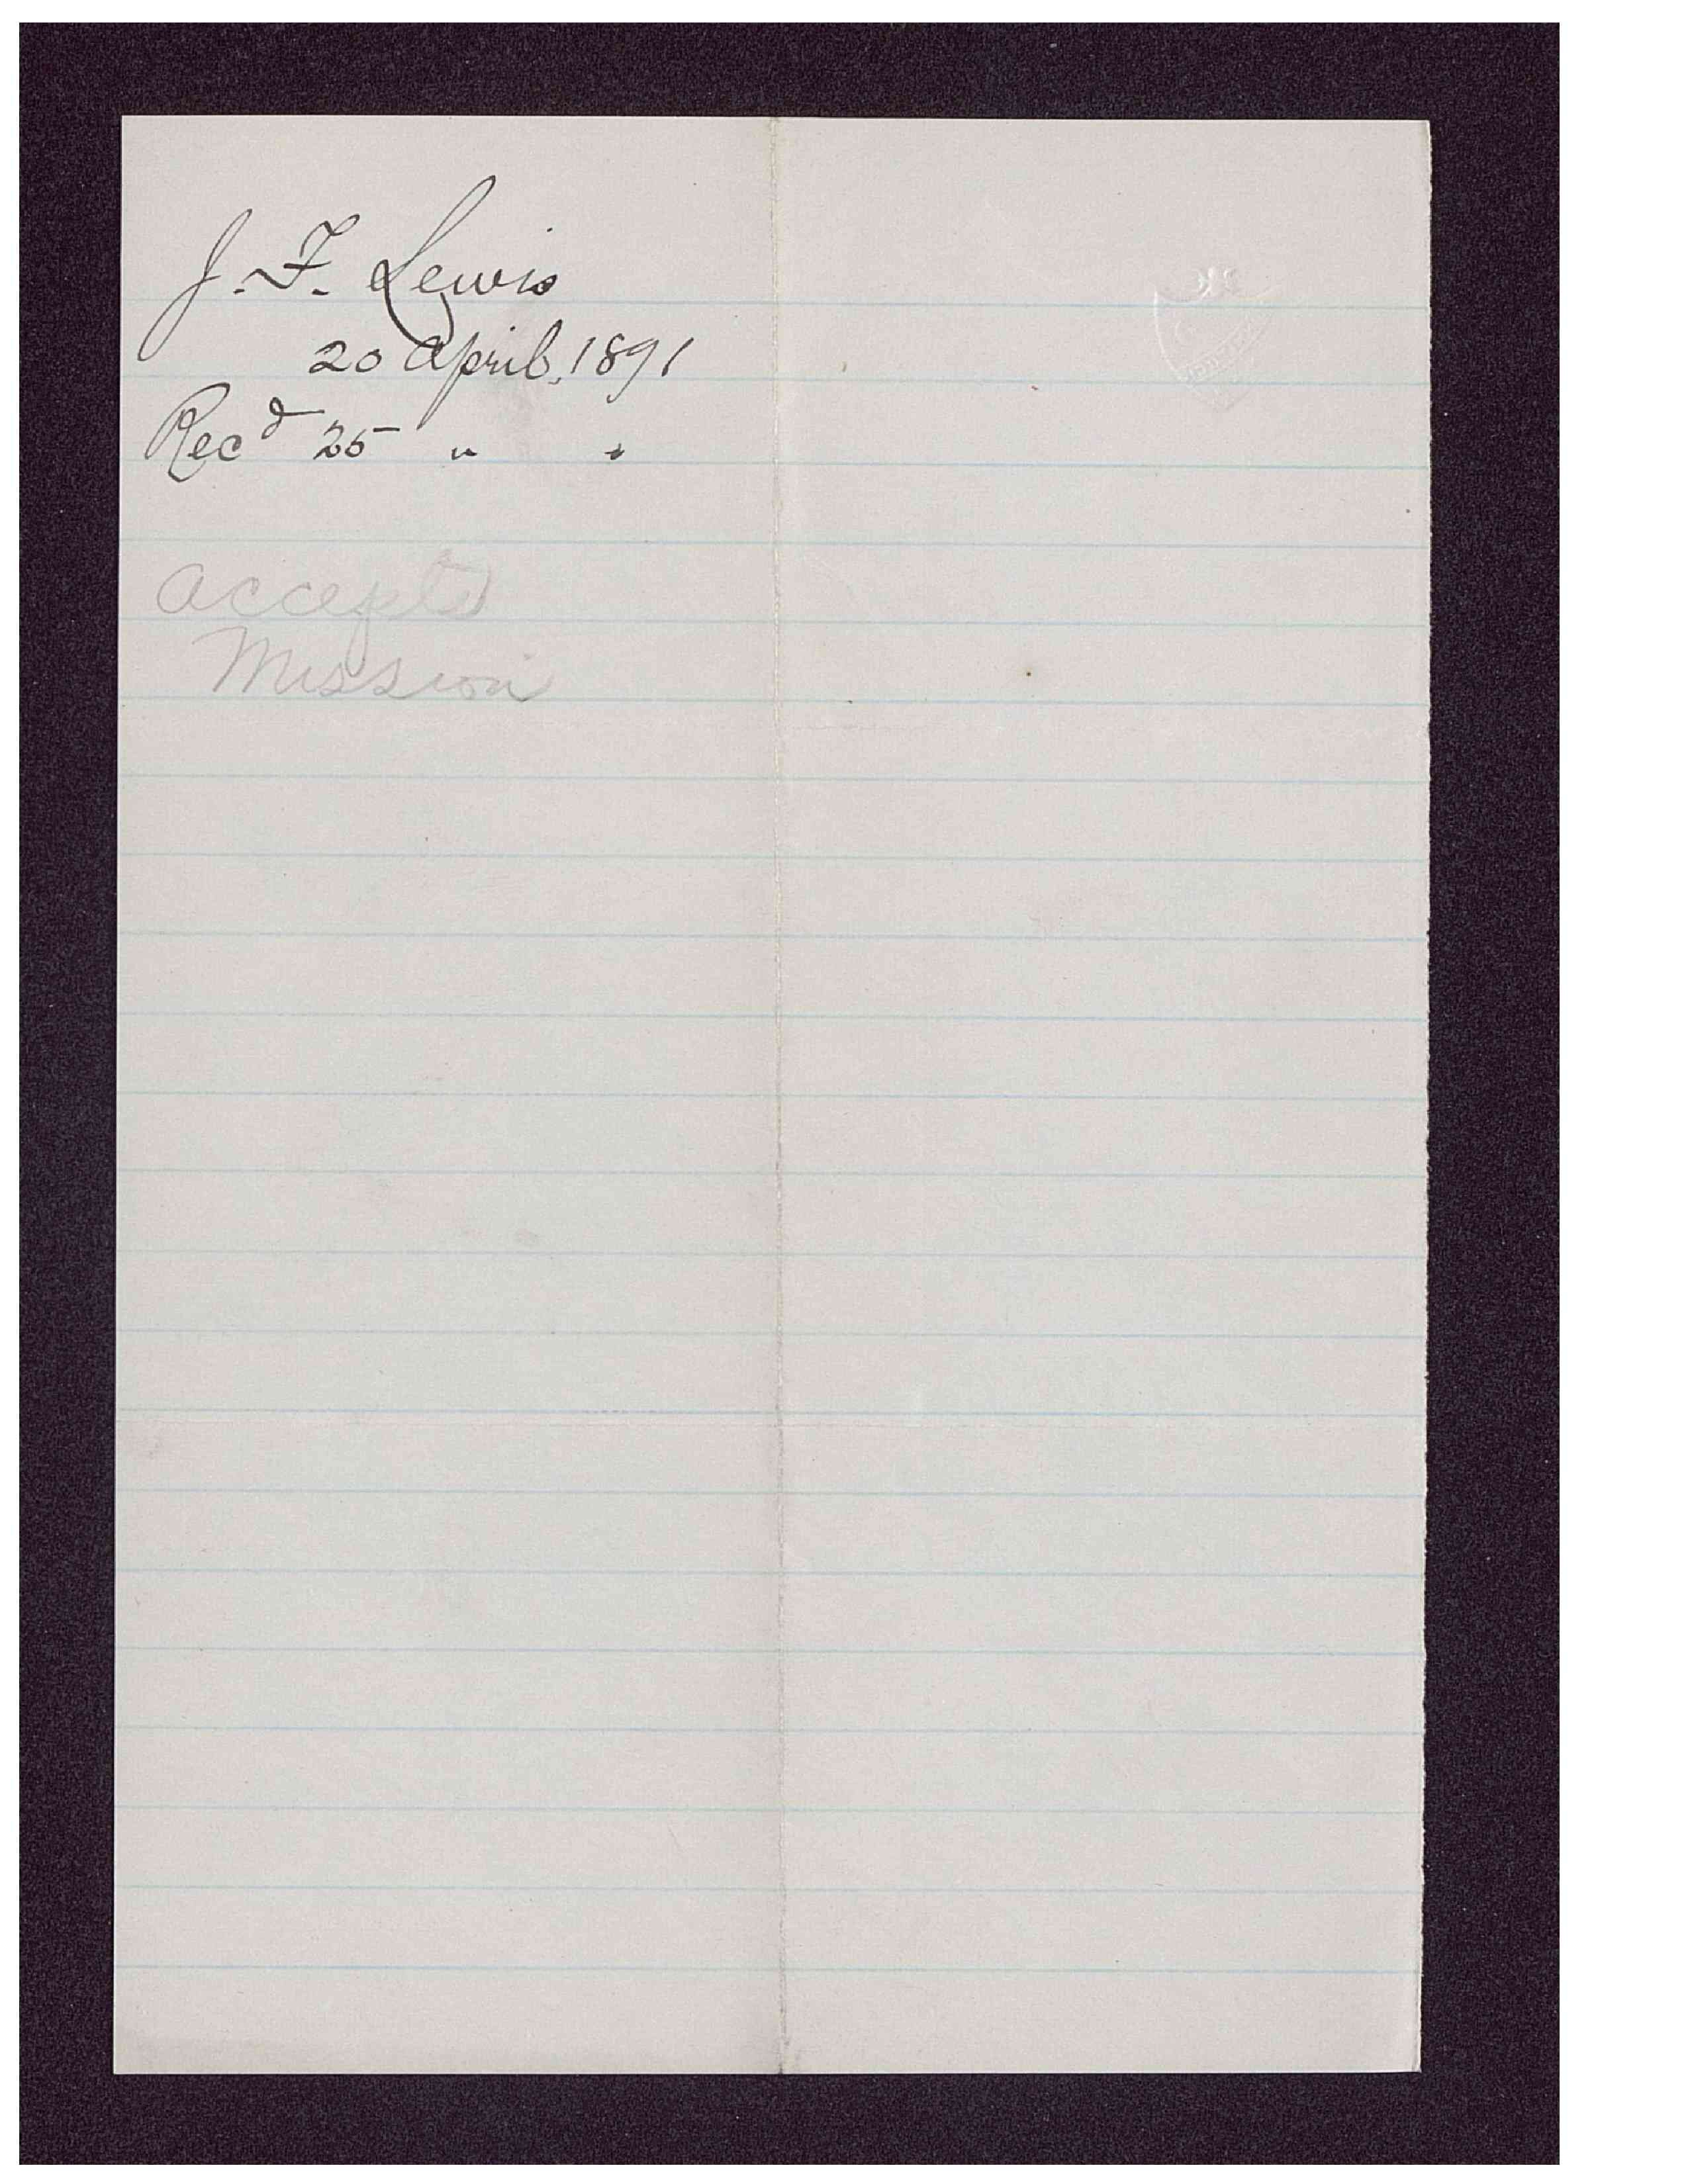 J. F. Lewis
20 April, 1891
Recd 25 " "
accepts
Mission